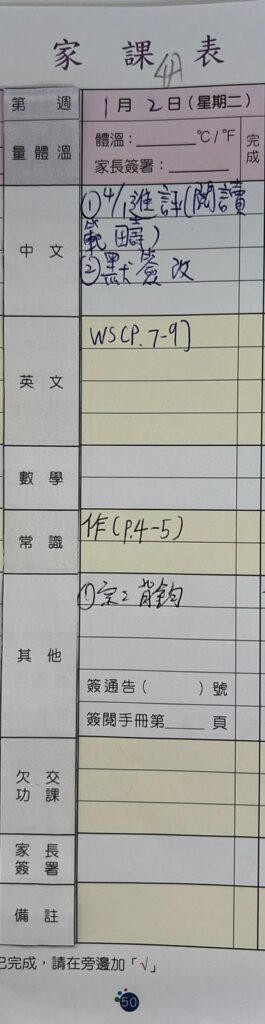 家課表
4A
第 週 1月2日(星期二)
量體溫 體溫：______°C/°F 完成
家長簽署：______
中文 ①4/1進評(閱讀
範疇)
②默簽改
英文 WS(P.7-9)
數學
常識 作(P.4-5)
其他 ①
簽通告( )號
簽閱手冊第____頁
欠交功課
家長簽署
備註
已完成，請在旁邊加「√」
50